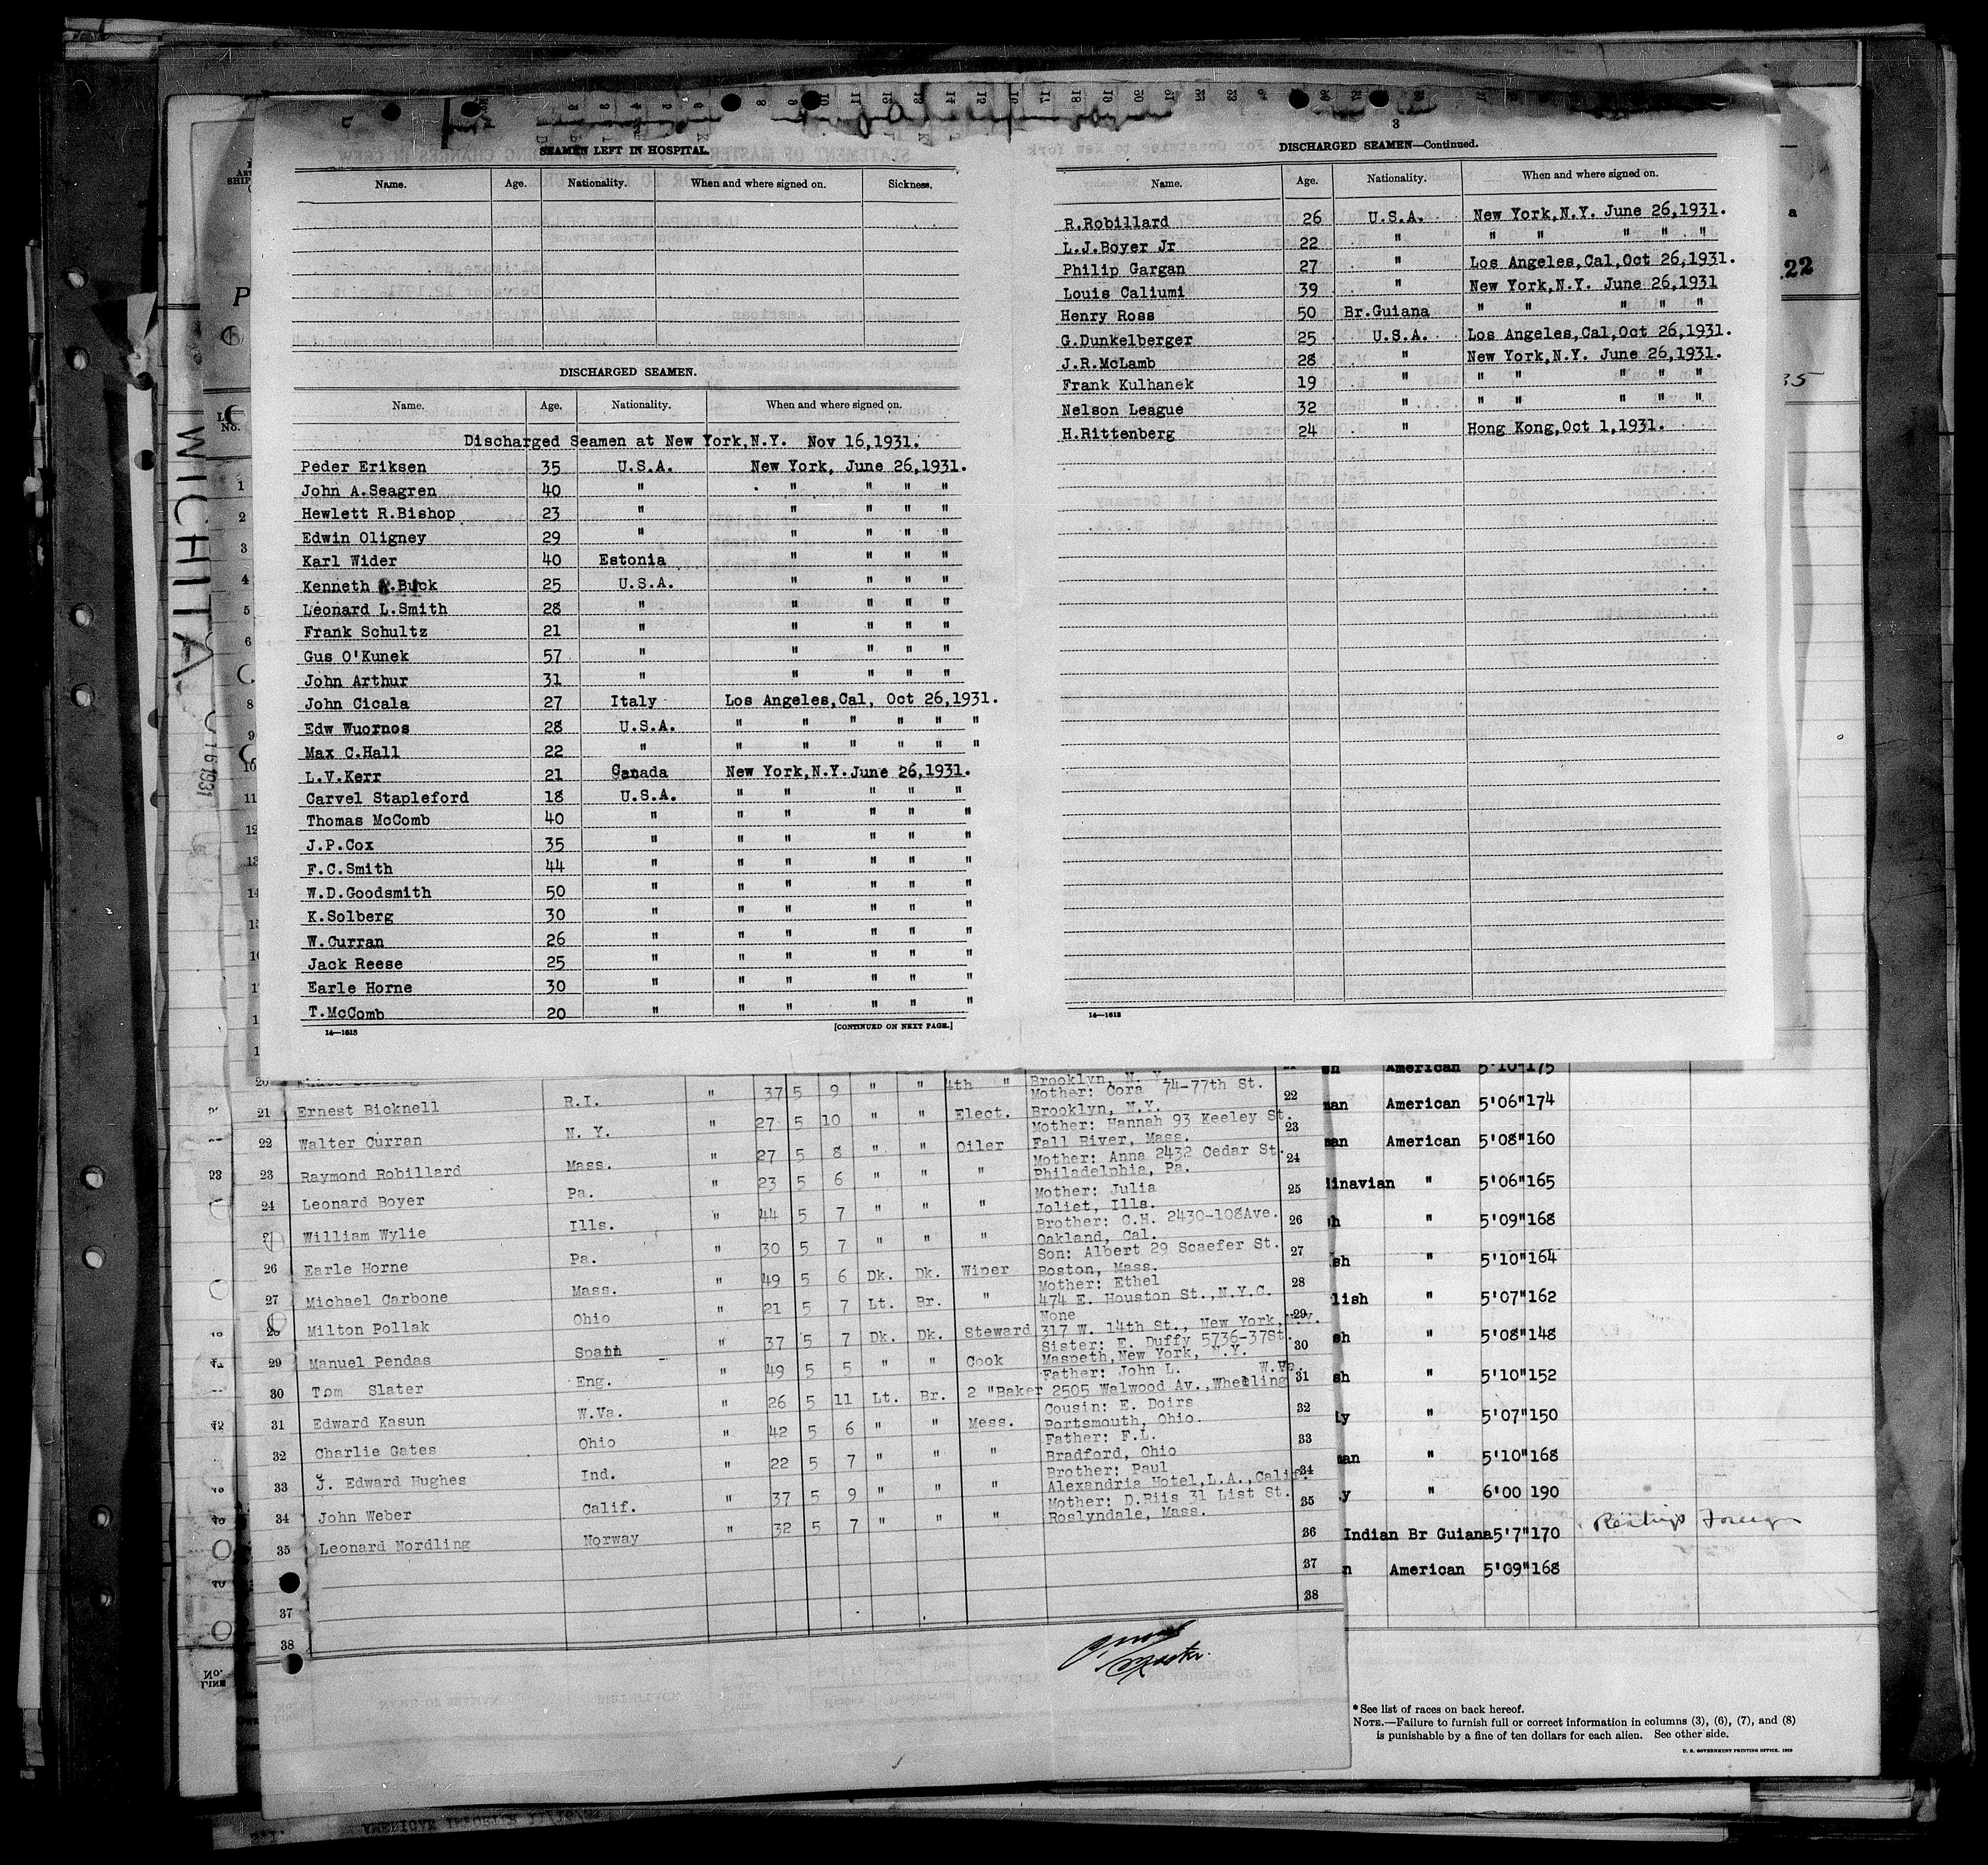 SEAMEN LEFT IN HOSPITAL.
Name. Age. Nationality. When and where signed on. Sickness.
DISCHARGED SEAMEN.
Name. Age. Nationality. When and where signed on.
Discharged Seamen at New York,N.Y. Nov 16,1931.
Peder Eriksen 35 U.S.A. New York, June 26,1931.
John A.Seagren 40 " " " " "
Hewlett R.Bishop 23 " " " " "
Edwin Oligney 29 " " " " "
Karl Wider 40 Estonia " " " "
Kenneth R.Buck 25 U.S.A. " " " "
Leonard L.Smith 28 " " " " "
Frank Schultz 21 " " " " "
Gus O'Kunek 57 " " " " "
John Arthur 31 " " " " "
John Cicala 27 Italy Los Angeles,Cal, Oct 26,1931.
Edw Wuornos 28 U.S.A. " " " " " "
Max C.Hall 22 " " " " " " "
L.V.Kerr 21 Canada New York,N.Y.June 26,1931.
Carvel Stapleford 18 U.S.A. " " " " "
Thomas McComb 40 " " " " " "
J.P.Cox 35 " " " " " "
F.C.Smith 44 " " " " " "
W.D.Goodsmith 50 " " " " " "
K.Solberg 30 " " " " " "
W.Curran 26 " " " " " "
Jack Reese 25 " " " " " "
Earle Horne 30 " " " " " "
T.McComb 20 " " " " " "
14—1613 [CONTINUED ON NEXT PAGE.]
3
DISCHARGED SEAMEN—Continued.
Name. Age. Nationality. When and where signed on.
R.Robillard 26 U.S.A. New York,N.Y. June 26,1931.
L.J.Boyer Jr 22 " " " " " "
Philip Gargan 27 " Los Angeles,Cal,Oct 26,1931.
Louis Caliumi 39 " New York,N.Y. June 26,1931
Henry Ross 50 Br.Guiana " " " " "
G.Dunkelberger 25 U.S.A. Los Angeles,Cal,Oct 26,1931.
J.R.McLamb 28 " New York,N.Y. June 26,1931.
Frank Kulhanek 19 " " " " " "
Nelson League 32 " " " " " "
H.Rittenberg 24 " Hong Kong,Oct 1,1931.
14—1613
WICHITA
22
35
21 Ernest Bicknell R.I. " 37 5 9 " " 4th " Brooklyn, N. Y.
Mother: Cora 74-77th St.
22 Walter Curran N. Y. " 27 5 10 " " Elect. Brooklyn, N.Y.
Mother: Hannah 93 Keeley St.
23 Raymond Robillard Mass. " 27 5 8 " " Oiler Fall River, Mass.
Mother: Anna 2432 Cedar St.
24 Leonard Boyer Pa. " 23 5 6 " " " Philadelphia, Pa.
Mother: Julia
William Wylie Ills. " 44 5 7 " " " Joliet, Ills.
Brother: C.H. 2430-108Ave.
26 Earle Horne Pa. " 30 5 7 " " " Oakland, Cal.
Son: Albert 29 Scaefer St.
27 Michael Carbone Mass. " 49 5 6 Dk. Dk. Wiper Boston, Mass.
Mother: Ethel
28 Milton Pollak Ohio " 21 5 7 Lt. Br. " 474 E. Houston St.,N.Y.C.
None
29 Manuel Pendas Spain " 37 5 7 Dk. Dk. Steward 317 W. 14th St., New York, N.Y.
Sister: E. Duffy 5736-37St.
30 Tom Slater Eng. " 49 5 5 " " Cook Maspeth,New York, N.Y.
Father: John L. W.Va.
31 Edward Kasun W.Va. " 26 5 11 Lt. Br. 2 "Baker 2505 Walwood Av.,Wheeling
Cousin: E. Doirs
32 Charlie Gates Ohio " 42 5 6 " " Mess. Portsmouth, Ohio.
Father: F.L.
33 J. Edward Hughes Ind. " 22 5 7 " " " Bradford, Ohio
Brother: Paul
34 John Weber Calif. " 37 5 9 " " " Alexandria Hotel,L.A.,Calif.
Mother: D.Riis 31 List St.
35 Leonard Nordling Norway " 32 5 7 " " " Roslyndale, Mass.
37
38
22
23
24
25
26
27
28
29
30
31
32
33
34
35
36
37
38
American 5'10"175
American 5'06"174
American 5'08"160
" 5'06"165
" 5'09"168
" 5'10"164
" 5'07"162
" 5'08"148
" 5'10"152
" 5'07"150
" 5'10"168
" 6'00 190
Indian Br Guiana5'7"170
American 5'09"168
*See list of races on back hereof.
NOTE.—Failure to furnish full or correct information in columns (3), (6), (7), and (8)
is punishable by a fine of ten dollars for each alien. See other side.
U. S. GOVERNMENT PRINTING OFFICE.